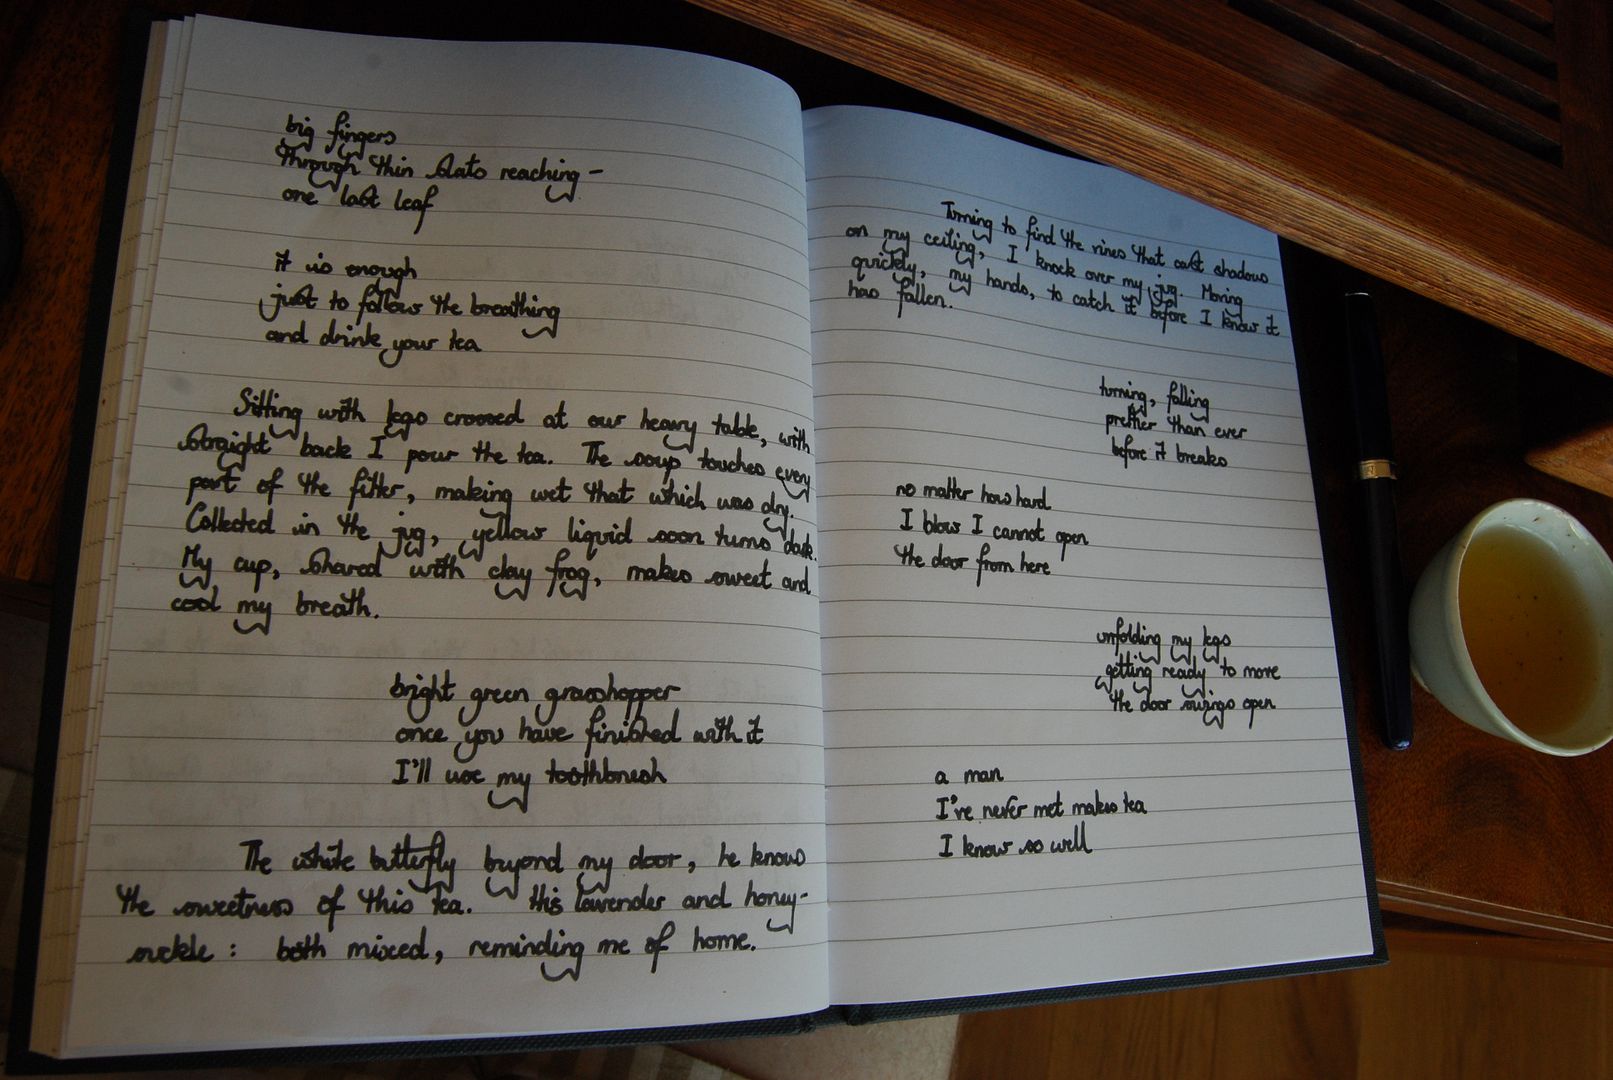 big fingers
through thin slats reaching -
one last leaf
it is enough
just to follow the breathing
and drink your tea
Sitting with legs crossed at our heavy table, with
straight back I pour the tea. The soup touches every
part of the filter, making wet that which was dry.
Collected in the jug, yellow liquid soon turns dark.
My cup, shared with clay frog, makes sweet and
cool my breath.
bright green grasshopper
once you have finished with it
I'll use my toothbrush
The white butterfly beyond my door, he knows
the sweetness of this tea. His lavender and honey-
suckle: both mixed, reminding me of home.
Turning to find the vines that cast shadows
on my ceiling, I knock over my jug. Moving
quickly, my hands, to catch it before I know it
has fallen.
turning, falling
prettier than ever
before it breaks
no matter how hard
I blow I cannot open
the door from here
unfolding my legs
getting ready to move
the door swings open
a man
I've never met makes tea
I know so well